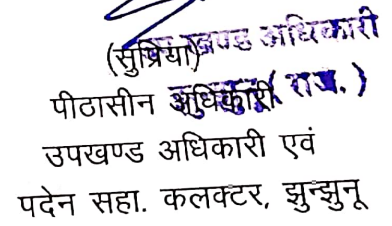 खण्ड अधिकारी
(सुप्रिया)
(राज.)
पीठासीन अधिकारी
उपखण्ड अधिकारी एवं
पदेन सहा. कलक्टर, झुन्झुनू